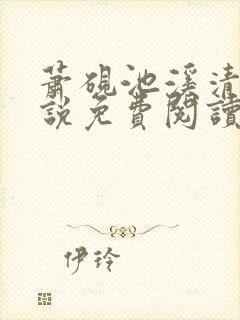 蕭硯池溪清
説免費閱讀
伊玲